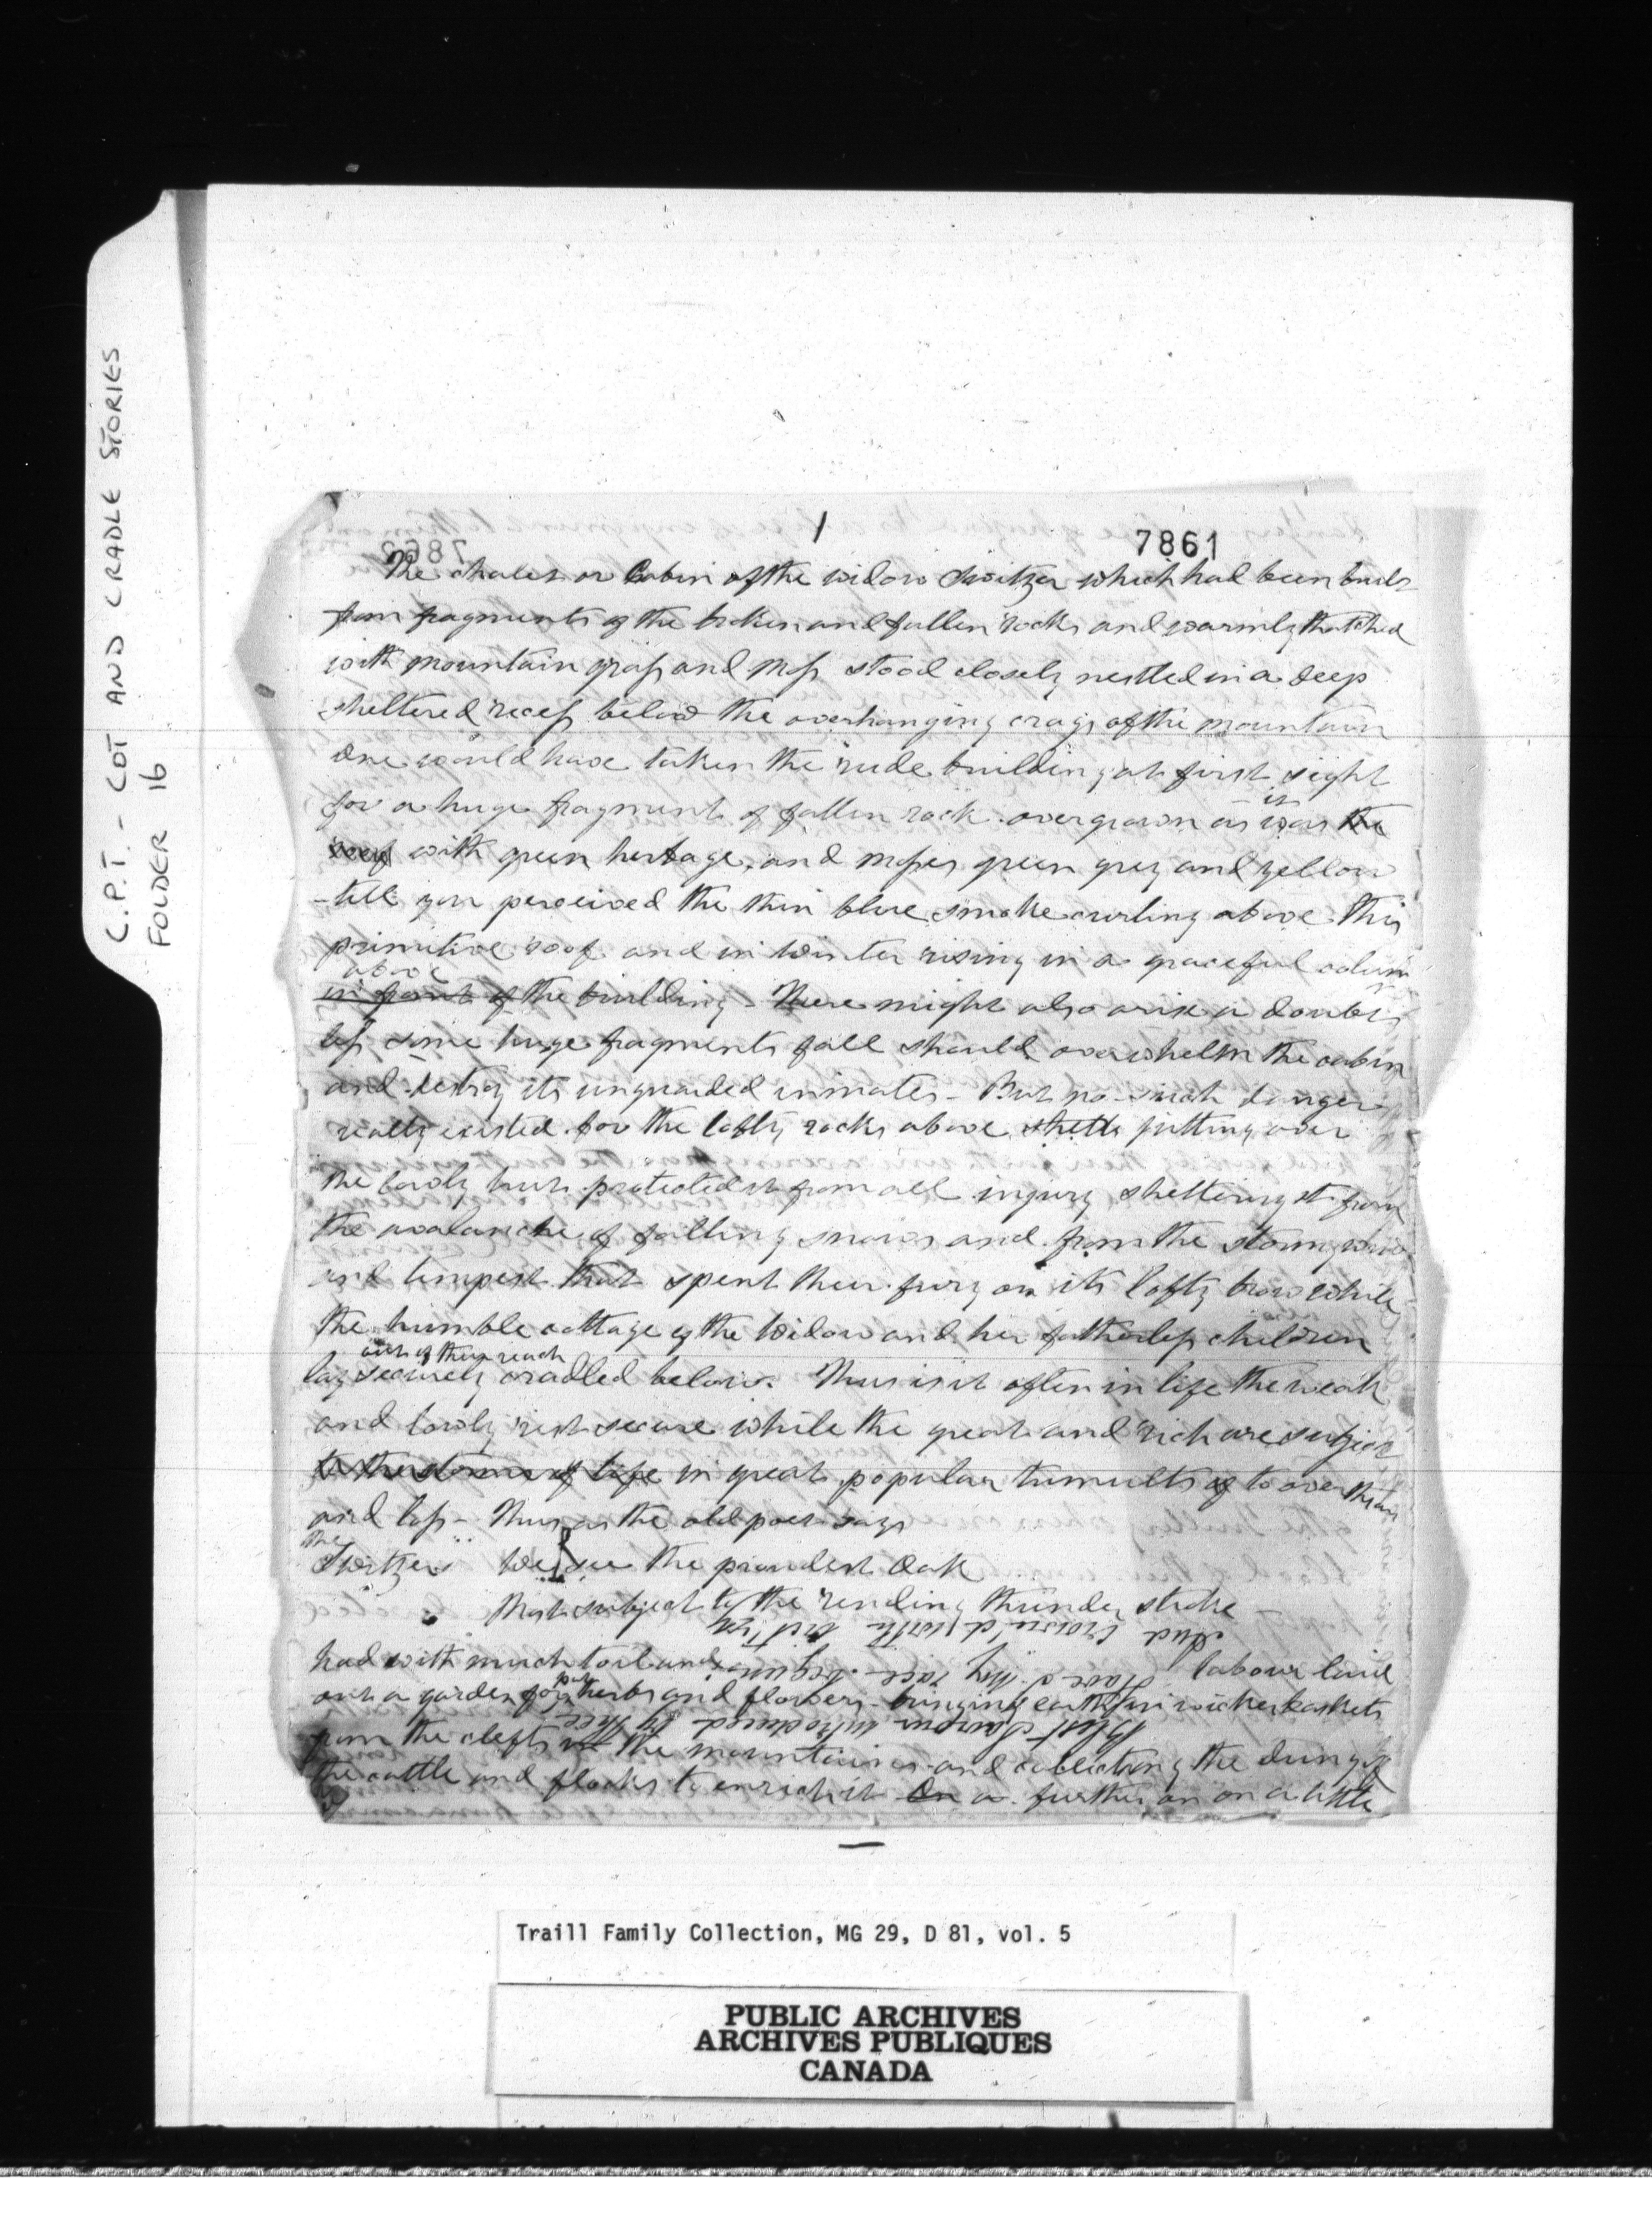 C.P.T. - COT AND CRADLE STORIES
FOLDER 16
1
7861
The chalet or Cabin of the widow Switzer which had been built
from fragments of the broken and fallen rocks and warmly thatched
with mountain grass and moss stood closely nestled in a deep
sheltered recess below the overhanging crags of the mountain
One would have taken the rude building at first sight
for a huge fragment of fallen rock overgrown as it was the
roof with green herbage, and mosses green grey and yellow
-till you perceived the thin blue smoke curling above this
primitive roof and in Winter rising in a graceful colum
above
in front of the building - There might also arise a doubt
less some huge fragments fall should overwhelm the cabin
and destroy its unguarded inmates - But no such danger
really existed for the lofty rocks above jutting over
the lowly hut protected it from all injury sheltering it from
the avalanche of falling snows and from the stormy wind
and tempest that spent their fury on its lofty brow while
the humble cottage of the Widow and her fatherless children
out of their reach
lay securely cradled below. Thus is it often in life the weak
and lowly rest secure while the great and rich are subject
to the storms of life in great popular tumults of to over throw
and loss - Thus as the old poet says
The
Switzer We see the proudest Oak
Most subject to the rending thunder stroke -
And crown'd with
had with much toil and labour laid
out a garden for herbs and flowers - bringing earth in wicker baskets
introduced by thee
from the clefts in the mountains and collecting the dung of
the cattle and flocks to enrich it On a further on on a little
Traill Family Collection, MG 29, D 81, vol. 5
PUBLIC ARCHIVES
ARCHIVES PUBLIQUES
CANADA